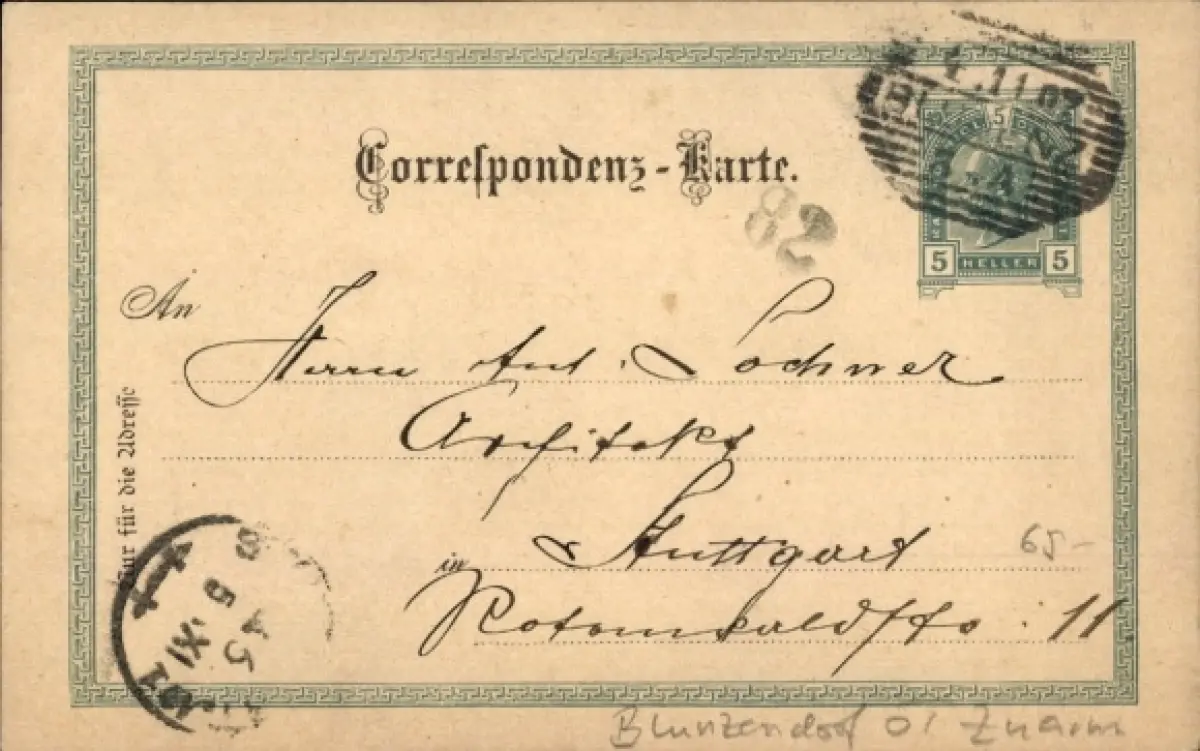 4.11.07
5
Correspondenz-Karte.
82
5 HELLER 5
An
Herrn Ant. Lochner
Architekt
Nur für die Adresse
in Stuttgart
65-
Rotenwaldstr. 11
5. XI
Blunzendorf Ö/ Znaim